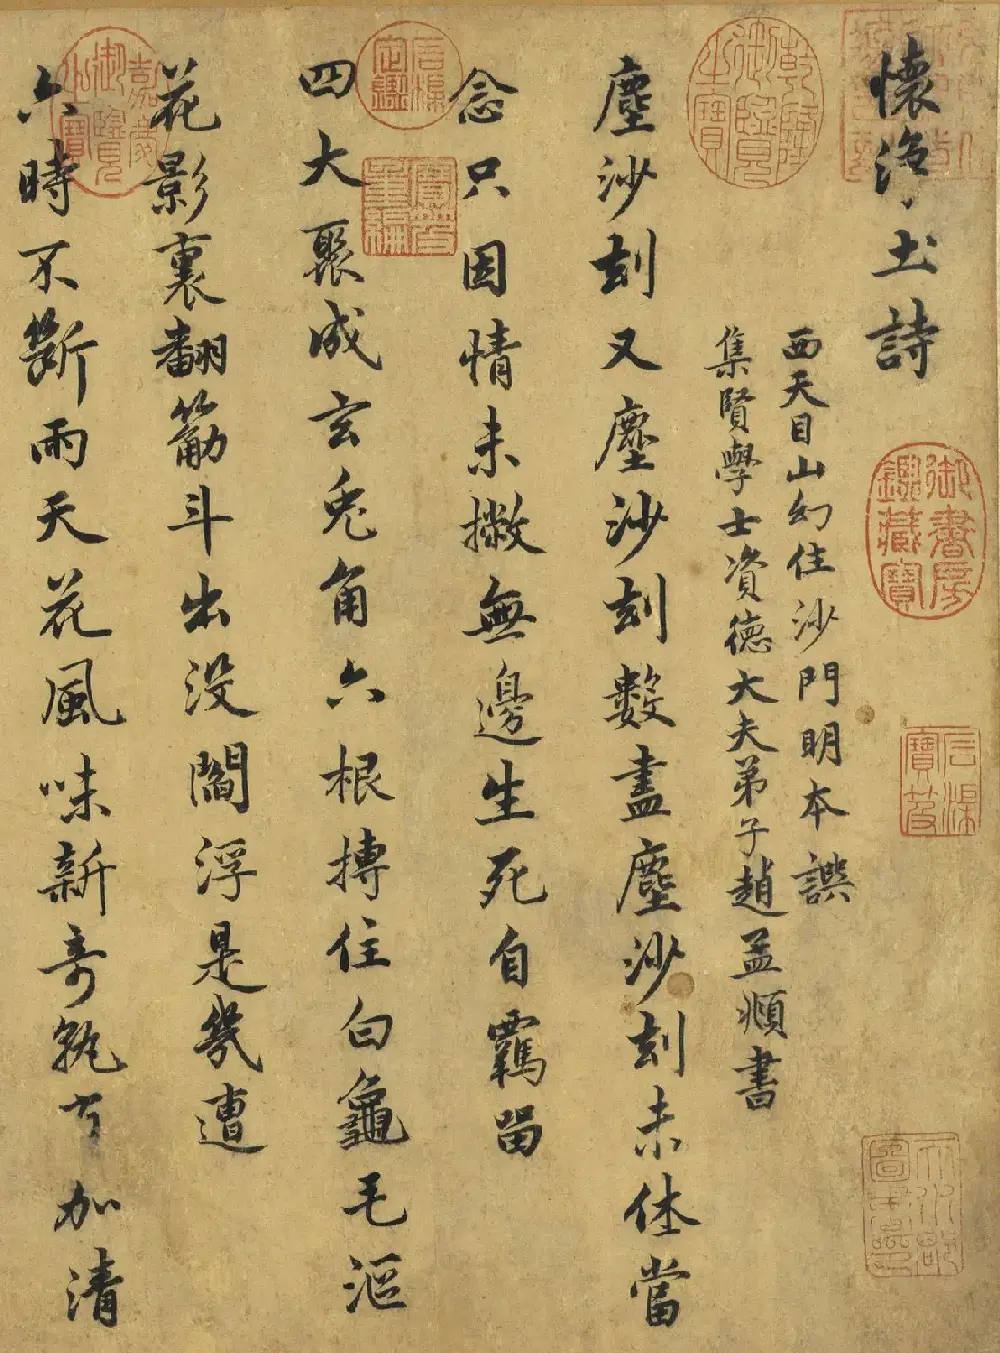 懷淨土詩
西天目山幻住沙門明本譔
集賢學士資德大夫弟子趙孟頫書
塵沙刻又塵沙刻數盡塵沙刻未休當
念只因情未撇無邊生死自羈留
四大聚成玄兔角六根摶住白龜毛漚
花影裏翻筋斗出沒閻浮是幾遭
六時不斷雨天花風味新奇孰有加清
乾隆御覽之寶
嘉慶御覽之寶
石渠定鑑
寶笈重編
御書房鑑藏寶
石渠寶笈